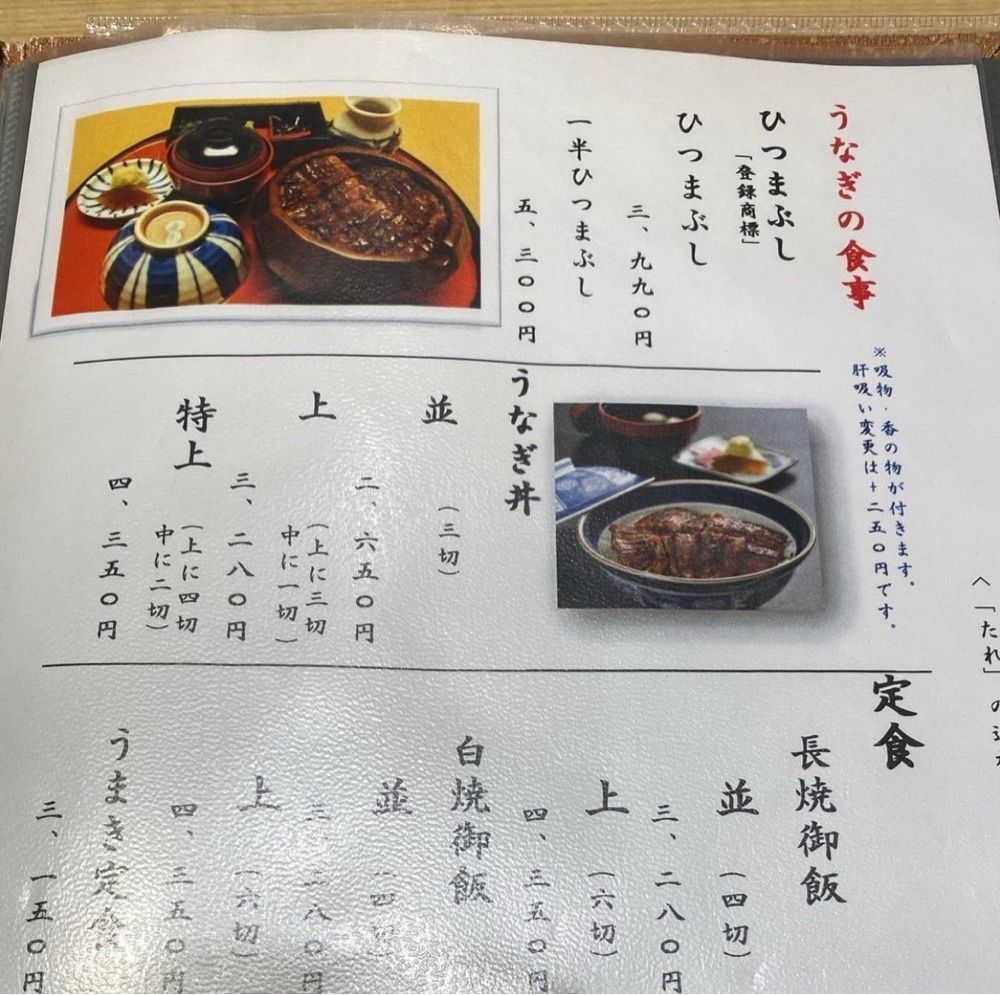 うなぎの食事
ひつまぶし
「登録商標」
ひつまぶし
三、九九〇円
一半ひつまぶし
五、三〇〇円
※吸物・香の物が付きます。
肝吸い変更は＋二五〇円です。
うなぎ丼
並
（三切）
二、六五〇円
上
（上に三切
中に一切）
三、二八〇円
特上
（上に四切
中に二切）
四、三五〇円
定食
長焼御飯
並
（四切）
三、二八〇円
上
（六切）
四、三五〇円
白焼御飯
並
（四切）
三、二八〇円
上
（六切）
四、三五〇円
うまき定食
三、一五〇円
「たれ」の